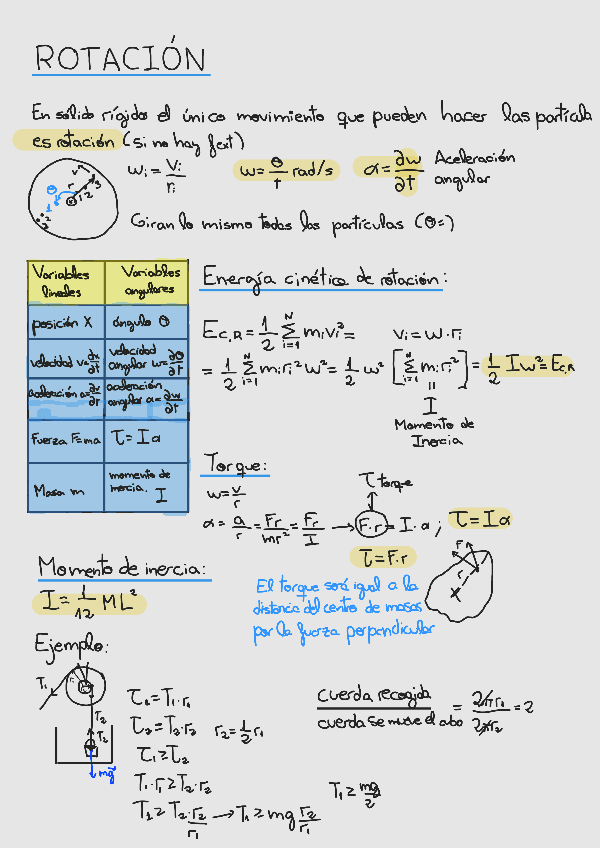 ROTACIÓN
En sólido rígido el único movimiento que pueden hacer las partícula
es rotación (si no hay fext)
ωi = vi/ri
ω = θ/t rad/s
α = ∂ω/∂t Aceleración angular
θ
r
v
Giran lo mismo todas las partículas (θ=)
Variables lineales | Variables angulares
posición X | ángulo θ
velocidad v=∂x/∂t | velocidad angular ω=∂θ/∂t
aceleración a=∂v/∂t | aceleración angular α=∂ω/∂t
Fuerza F=ma | τ = Iα
Masa m | momento de inercia. I
Energía cinética de rotación:
Ec,R = 1/2 Σ(i=1, N) mi vi² =
vi = ω·ri
= 1/2 Σ(i=1, N) mi ri² ω² = 1/2 ω² [Σ(i=1, N) mi ri²] = 1/2 Iω² = Ec,R
=
I
Momento de
Inercia
Torque:
ω = v/r
τ torque
α = a/r = Fr/mr² = Fr/I → F·r = I·α ; τ = Iα
τ = F·r
F
r
x
El torque será igual a la
distancia del centro de masas
por la fuerza perpendicular
Momento de inercia:
I = 1/12 ML²
Ejemplo:
T1
T2
T2
mg
τ1 = T1·r1
τ2 = T2·r2
r2 = 1/2 r1
τ1 ≥ τ2
T1·r1 ≥ T2·r2
T1 ≥ T2·r2/r1 → T1 ≥ mg r2/r1
T1 ≥ mg/2
Cuerda recogida / cuerda se mueve el cubo = 2πr1/2πr2 = 2